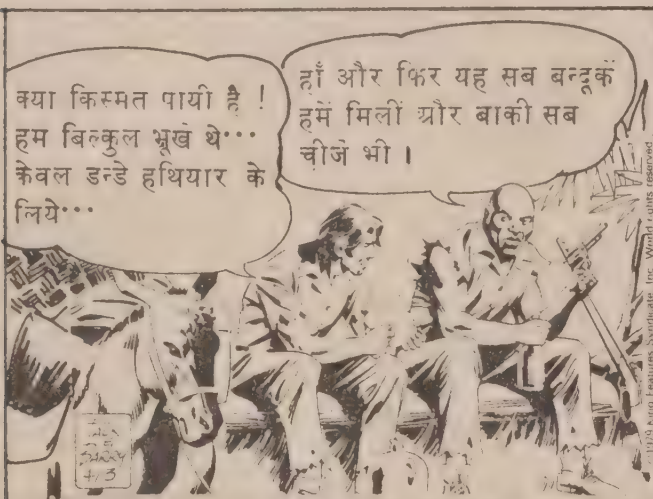 क्या किस्मत पायी है !
हम बिल्कुल भूखे थे···
केवल डन्डे हथियार के
लिये···
हाँ और फिर यह सब बन्दूकें
हमें मिलीं और बाकी सब
चीजें भी ।
King Features Syndicate Inc. World rights reserved.